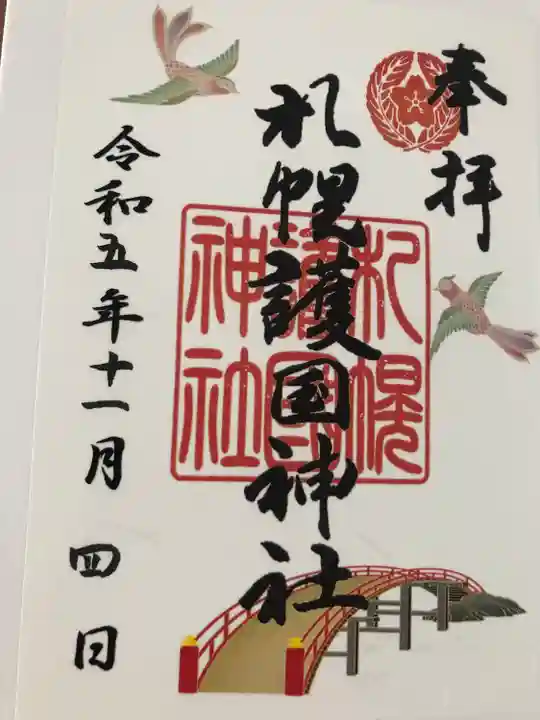 奉拝
札幌護国神社
札幌
護国
神社
令和五年十一月四日